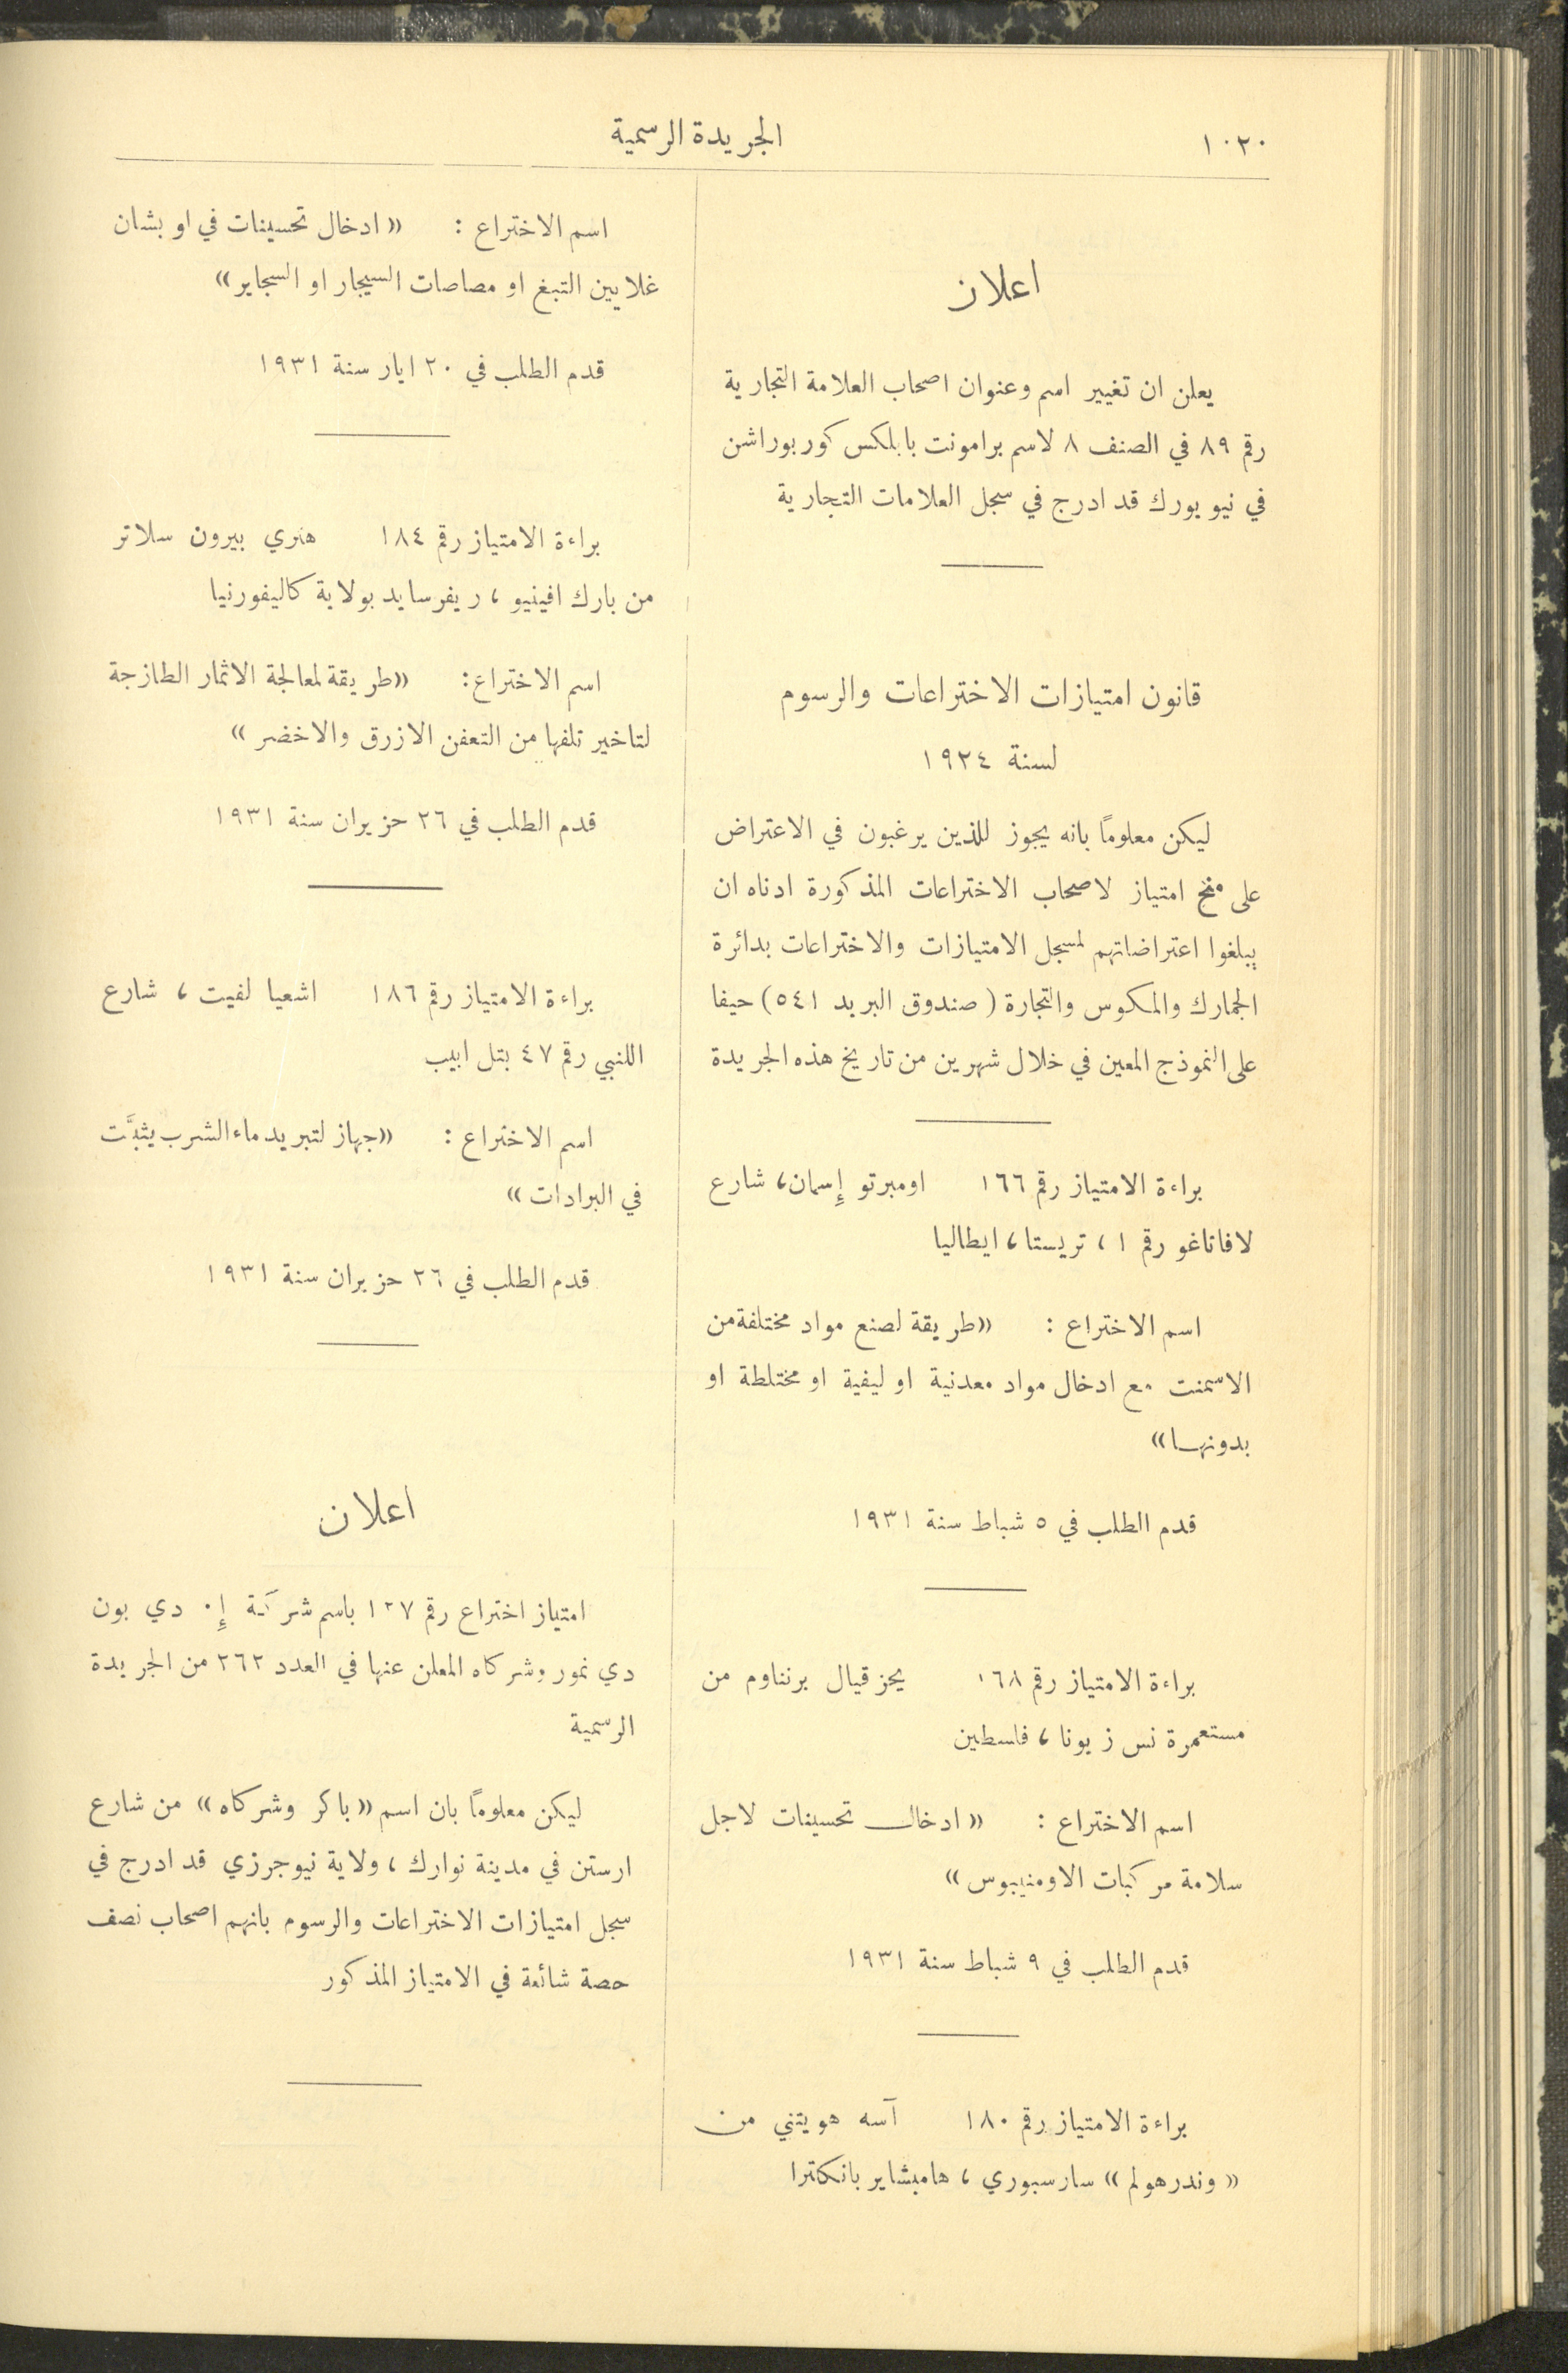 ١٠٢٠
الجريدة الرسمية
اعلان
يعلن ان تغيير اسم وعنوان اصحاب العلامة التجارية
رقم ٨٩ في الصنف ٨ لاسم برامونت بابلكس كوربوراشن
في نيو يورك قد ادرج في سجل العلامات التجارية
قانون امتيازات الاختراعات والرسوم
لسنة ١٩٢٤
ليكن معلوماً بانه يجوز للذين يرغبون في الاعتراض
على منح امتياز لاصحاب الاختراعات المذكورة ادناه ان
يبلغوا اعتراضاتهم لمسجل الامتيازات والاختراعات بدائرة
الجمارك والمكوس والتجارة (صندوق البريد ٥٤١) حيفا
على النموذج المعين في خلال شهرين من تاريخ هذه الجريدة
براءة الامتياز رقم ١٦٦ اومبرتو إسمان، شارع
لافاتاغو رقم ١، تريستا، ايطاليا
اسم الاختراع : «طريقة لصنع مواد مختلفة من
الاسمنت مع ادخال مواد معدنية او ليفية او مختلطة او
بدونها»
قدم الطلب في ٥ شباط سنة ١٩٣١
براءة الامتياز رقم ١٦٨ يحزقيال برنناوم من
مستعمرة نس زيونا، فلسطين
اسم الاختراع : «ادخال تحسينات لاجل
سلامة مركبات الاومنيبوس»
قدم الطلب في ٩ شباط سنة ١٩٣١
براءة الامتياز رقم ١٨٠ آسه هويتني من
«وندرهولم» سارسبوري، هامبشاير بانكلترا
اسم الاختراع : «ادخال تحسينات في او بشان
غلايين التبغ او مصاصات السيجار او السجاير»
قدم الطلب في ٢٠ ايار سنة ١٩٣١
براءة الامتياز رقم ١٨٤ هنري بيرون سلاتر
من بارك افينيو، ريفرسايد بولاية كاليفورنيا
اسم الاختراع: «طريقة لمعالجة الاثمار الطازجة
لتاخير تلفها من التعفن الازرق والاخضر»
قدم الطلب في ٢٦ حزيران سنة ١٩٣١
براءة الامتياز رقم ١٨٦ اشعيا لفيت، شارع
اللنبي رقم ٤٧ بتل ابيب
اسم الاختراع : «جهاز لتبريد ماء الشرب يثبَّت
في البرادات»
قدم الطلب في ٢٦ حزيران سنة ١٩٣١
اعلان
امتياز اختراع رقم ١٢٧ باسم شركة إ. دي بون
دي نمور وشركاه المعلن عنها في العدد ٢٦٢ من الجريدة
الرسمية
ليكن معلوماً بان اسم «باكر وشركاه» من شارع
ارستن في مدينة نوارك، ولاية نيوجرزي قد ادرج في
سجل امتيازات الاختراعات والرسوم بانهم اصحاب نصف
حصة شائعة في الامتياز المذكور